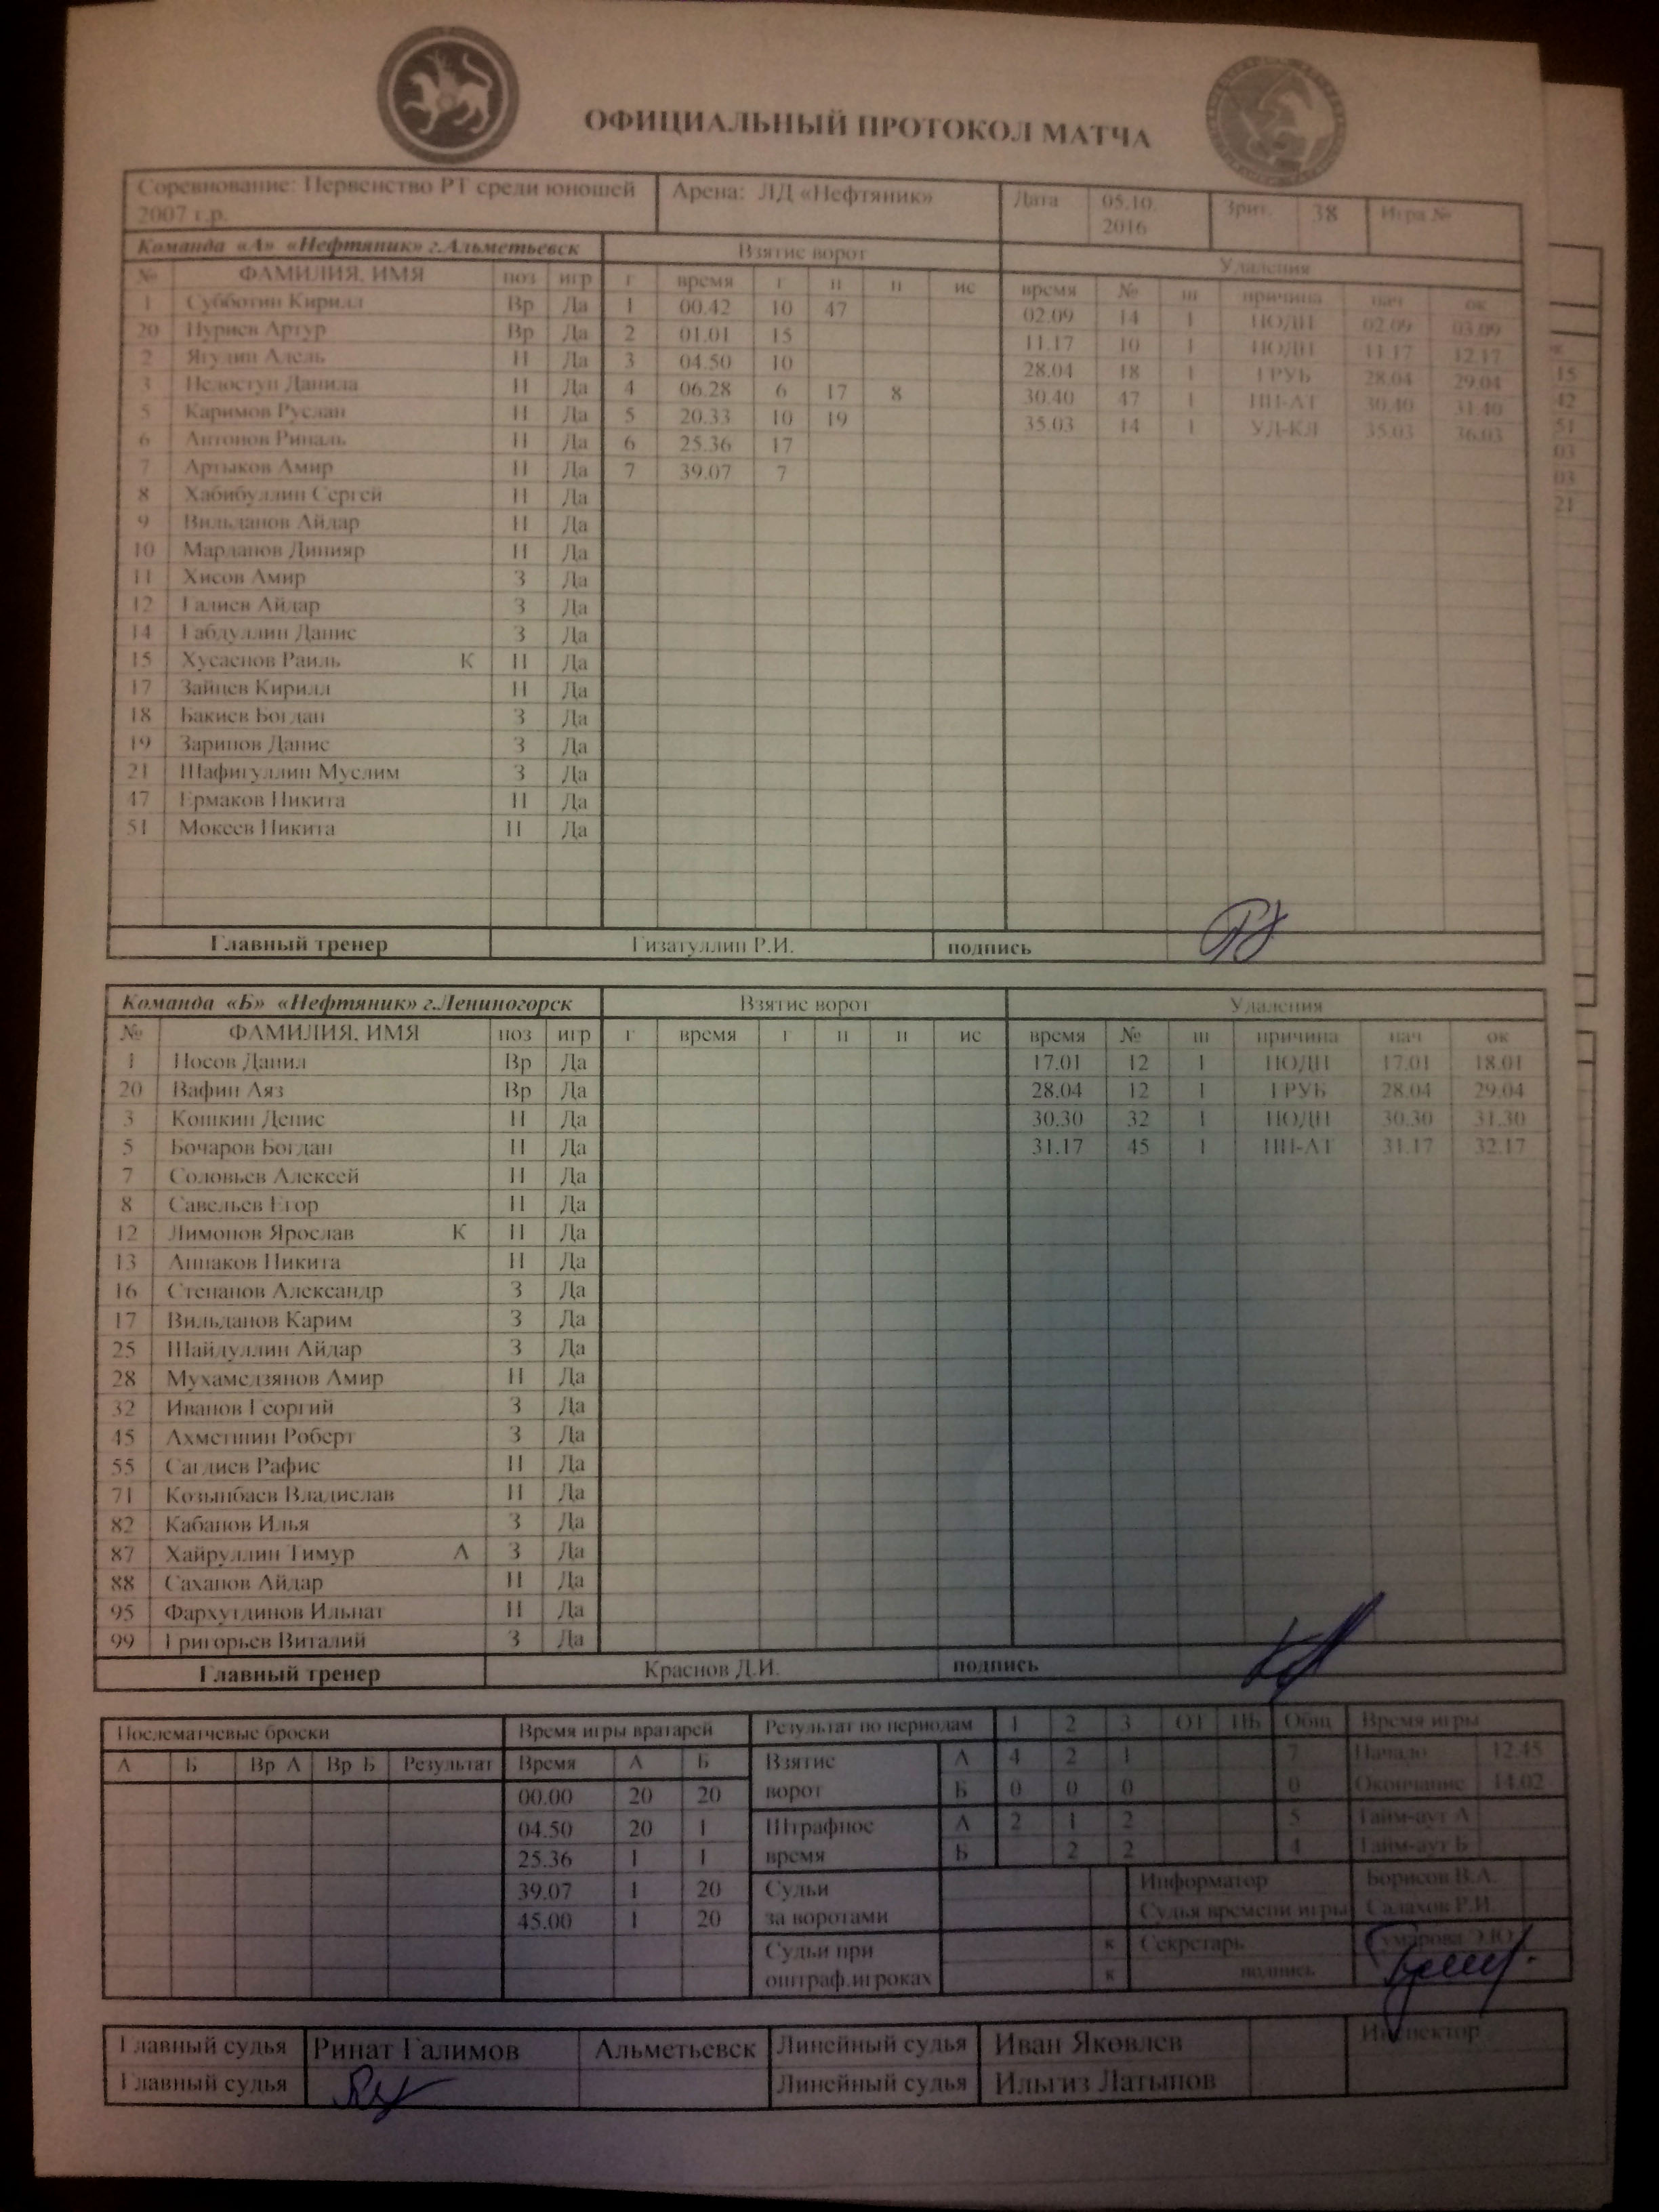 ОФИЦИАЛЬНЫЙ ПРОТОКОЛ МАТЧА
Соревнование: Первенство РТ среди юношей 2007 г.р. Арена: ЛД «Нефтяник» Дата 05.10.2016 Зрит. 38 Игра №
Команда «А» «Нефтяник» г.Альметьевск Взятие ворот Удаления
№ ФАМИЛИЯ, ИМЯ поз игр г время г п п ис время № ш причина нач ок
1 Субботин Кирилл Вр Да 1 00.42 10 47 02.09 14 1 ПОДН 02.09 03.09
20 Нуриев Артур Вр Да 2 01.01 15 11.17 10 1 ПОДН 11.17 12.17
2 Ягудин Адель Н Да 3 04.50 10 28.04 18 1 ГРУБ 28.04 29.04
3 Недоступ Данила Н Да 4 06.28 6 17 8 30.40 47 1 НП-АТ 30.40 31.40
5 Каримов Руслан Н Да 5 20.33 10 19 35.03 14 1 УД-КЛ 35.03 36.03
6 Антонов Риналь Н Да 6 25.36 17
7 Артыков Амир Н Да 7 39.07 7
8 Хабибуллин Сергей Н Да
9 Вильданов Айдар Н Да
10 Марданов Динияр Н Да
11 Хисов Амир З Да
12 Галиев Айдар З Да
14 Габдуллин Данис З Да
15 Хусаенов Раиль К Н Да
17 Зайцев Кирилл Н Да
18 Бакиев Богдан З Да
19 Зарипов Данис З Да
21 Шафигуллин Муслим З Да
47 Ермаков Никита Н Да
51 Мокеев Никита Н Да
Главный тренер Гизатуллин Р.И. подпись
Команда «Б» «Нефтяник» г.Лениногорск Взятие ворот Удаления
№ ФАМИЛИЯ, ИМЯ поз игр г время г п п ис время № ш причина нач ок
1 Носов Данил Вр Да 17.01 12 1 ПОДН 17.01 18.01
20 Вафин Аяз Вр Да 28.04 12 1 ГРУБ 28.04 29.04
3 Кошкин Денис Н Да 30.30 32 1 ПОДН 30.30 31.30
5 Бочаров Богдан Н Да 31.17 45 1 НП-АТ 31.17 32.17
7 Соловьев Алексей Н Да
8 Савельев Егор Н Да
12 Лимонов Ярослав К Н Да
13 Аппаков Никита Н Да
16 Степанов Александр З Да
17 Вильданов Карим З Да
25 Шайдуллин Айдар З Да
28 Мухамедзянов Амир Н Да
32 Иванов Георгий З Да
45 Ахметшин Роберт З Да
55 Сагдиев Рафис Н Да
71 Козынбаев Владислав Н Да
82 Кабанов Илья З Да
87 Хайруллин Тимур А З Да
88 Саханов Айдар Н Да
95 Фархутдинов Ильнат Н Да
99 Григорьев Виталий З Да
Главный тренер Краснов Д.И. подпись
Послематчевые броски Время игры вратарей Результат по периодам 1 2 3 ОТ ПБ Общ Время игры
А Б Вр А Вр Б Результат Время А Б Взятие ворот А 4 2 1 7 Начало 12.45
00.00 20 20 Б 0 0 0 0 Окончание 14.02
04.50 20 1 Штрафное время А 2 1 2 5 Тайм-аут А
25.36 1 1 Б 2 2 4 Тайм-аут Б
39.07 1 20 Судьи за воротами Информатор Борисов В.А.
45.00 1 20 Судья времени игры Салахов Р.И.
Судьи при оштраф.игроках к Секретарь Гумарова Э.Ю.
к подпись
Главный судья Ринат Галимов Альметьевск Линейный судья Иван Яковлев Инспектор
Главный судья Линейный судья Ильгиз Латыпов